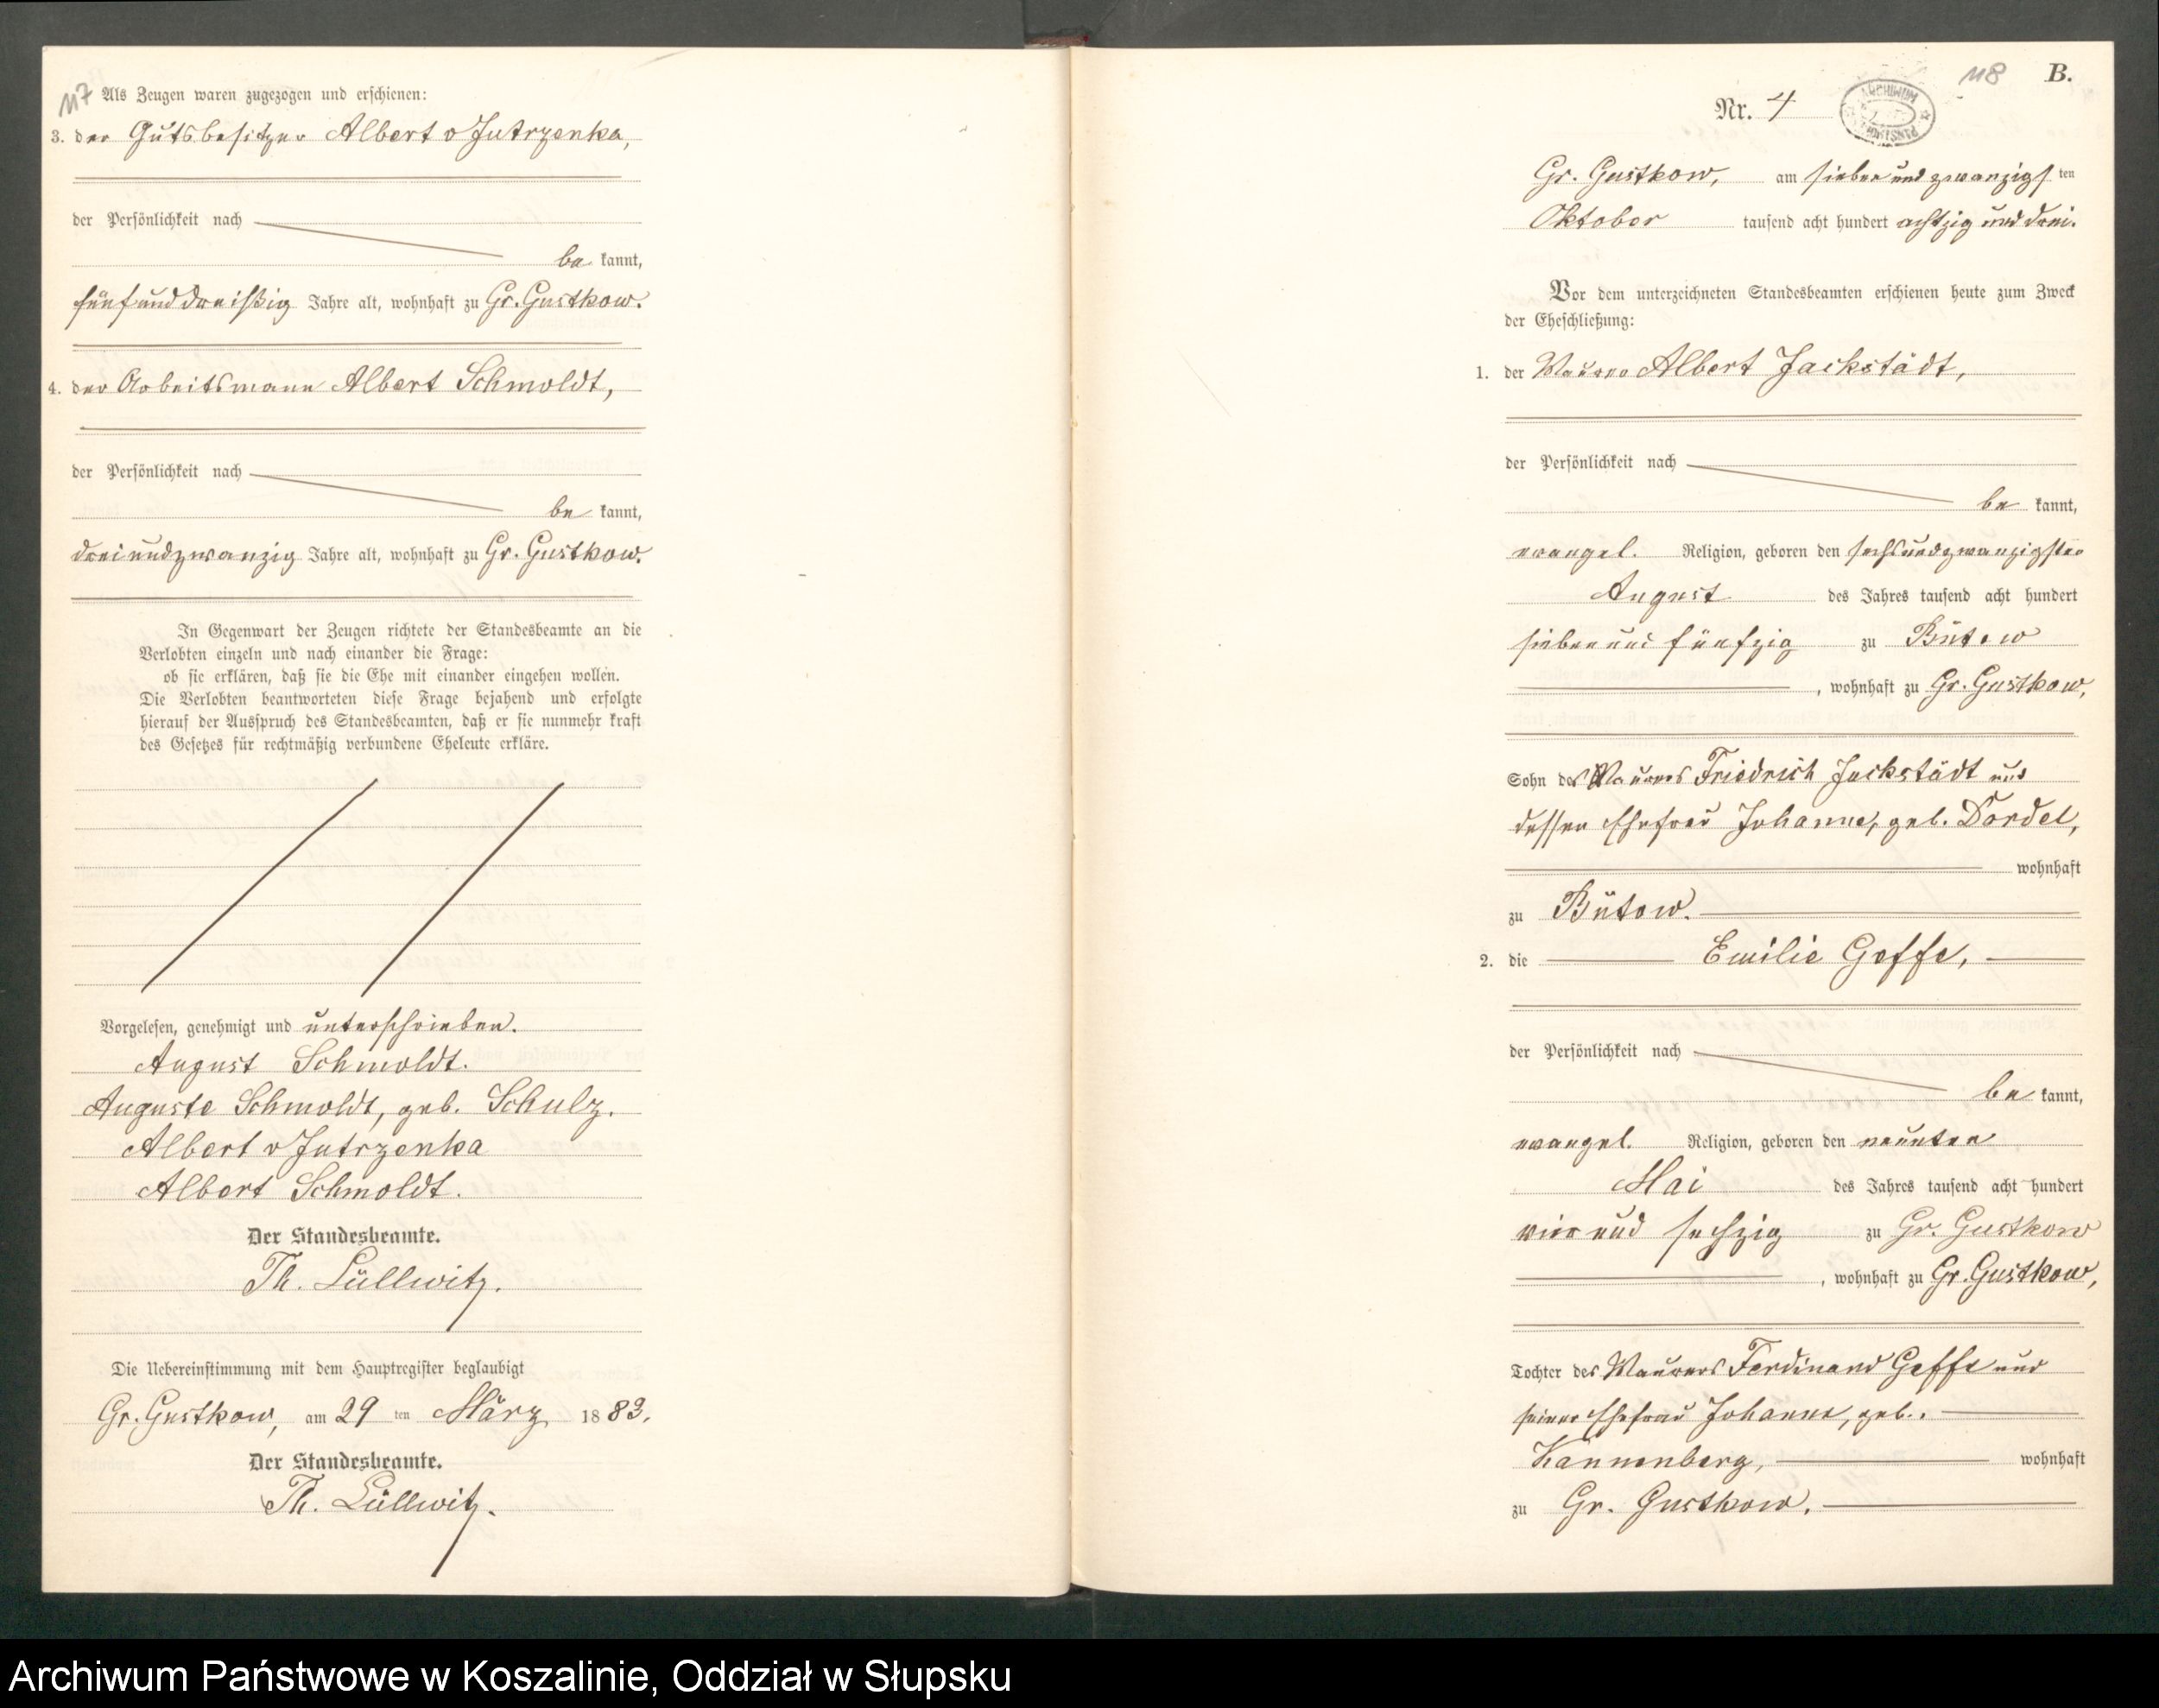 117
Als Zeugen waren zugezogen und erschienen:
3. der Gutsbesitzer Albert v Jutrzenka,
der Persönlichkeit nach
be kannt,
fünf und dreißig Jahre alt, wohnhaft zu Gr. Gustkow.
4. der Arbeitsmann Albert Schmoldt,
der Persönlichkeit nach
be kannt,
dreiundzwanzig Jahre alt, wohnhaft zu Gr. Gustkow.
In Gegenwart der Zeugen richtete der Standesbeamte an die
Verlobten einzeln und nach einander die Frage:
ob sie erklären, daß sie die Ehe mit einander eingehen wollen.
Die Verlobten beantworteten diese Frage bejahend und erfolgte
hierauf der Ausspruch des Standesbeamten, daß er sie nunmehr kraft
des Gesetzes für rechtmäßig verbundene Eheleute erkläre.
Vorgelesen, genehmigt und unterschrieben.
August Schmoldt.
Auguste Schmoldt, geb. Schulz.
Albert v Jutrzenka
Albert Schmoldt.
Der Standesbeamte.
Th. Lüllwitz.
Die Uebereinstimmung mit dem Hauptregister beglaubigt
Gr. Gustkow, am 29 ten März 1883.
Der Standesbeamte.
Th. Lüllwitz.
118 B.
Nr. 4
ARCHIWUM PAŃSTWOWE
Gr. Gustkow, am sieben und zwanzigs ten
Oktober tausend acht hundert achtzig und drei.
Vor dem unterzeichneten Standesbeamten erschienen heute zum Zweck
der Eheschließung:
1. der Maurer Albert Jackstädt,
der Persönlichkeit nach
be kannt,
evangel. Religion, geboren den sechsundzwanzigsten
August des Jahres tausend acht hundert
sieben und fünfzig zu Bütow
, wohnhaft zu Gr. Gustkow,
Sohn des Maurers Friedrich Jackstädt und
dessen Ehefrau Johanne, geb. Dordel,
wohnhaft
zu Bütow.
2. die Emilie Geffe,
der Persönlichkeit nach
be kannt,
evangel. Religion, geboren den neunten
Mai des Jahres tausend acht hundert
vier und sechzig zu Gr. Gustkow
, wohnhaft zu Gr. Gustkow,
Tochter des Maurers Ferdinand Geffe und
seiner Ehefrau Johanne, geb.
Kannenberg, wohnhaft
zu Gr. Gustkow.
Archiwum Państwowe w Koszalinie, Oddział w Słupsku